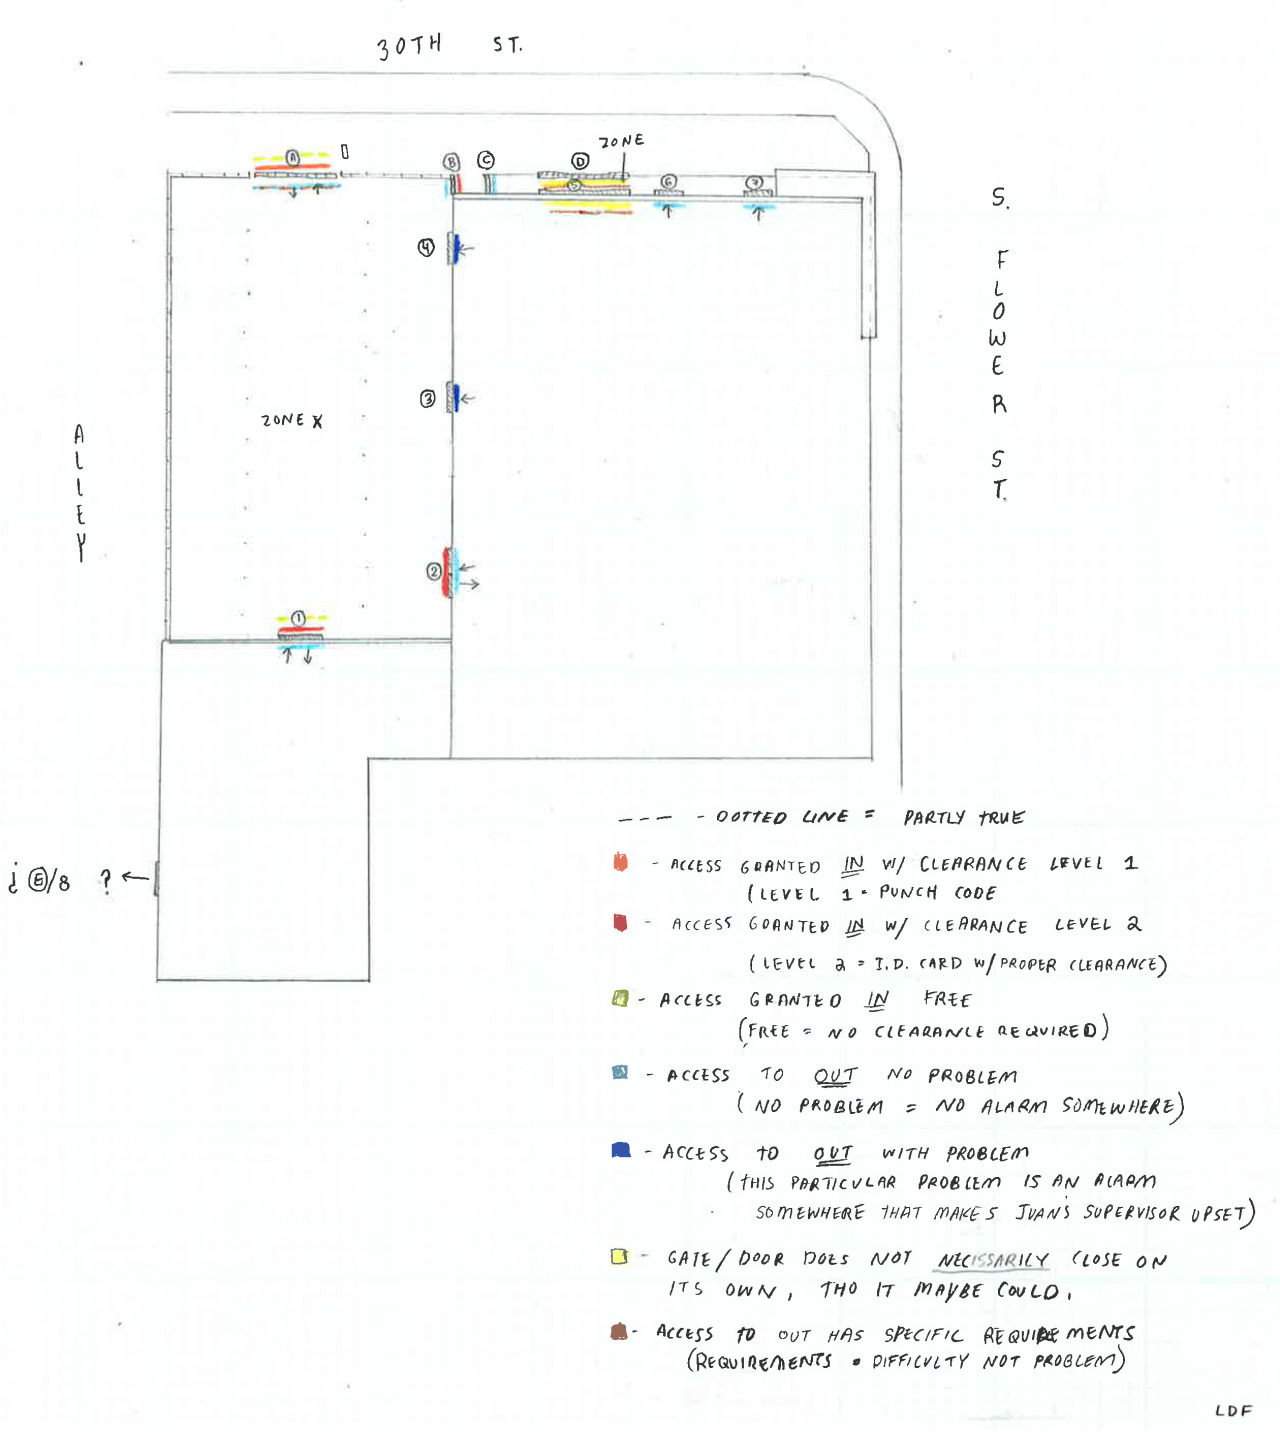 30TH ST.
A
B
C
D
ZONE
5
6
7
S. FLOWER ST.
4
3
ZONE X
ALLEY
2
1
¿ E/8 ?
--- - DOTTED LINE = PARTLY TRUE
- ACCESS GRANTED IN W/ CLEARANCE LEVEL 1
(LEVEL 1 = PUNCH CODE
- ACCESS GRANTED IN W/ CLEARANCE LEVEL 2
(LEVEL 2 = I.D. CARD W/ PROPER CLEARANCE)
- ACCESS GRANTED IN FREE
(FREE = NO CLEARANCE REQUIRED)
- ACCESS TO OUT NO PROBLEM
(NO PROBLEM = NO ALARM SOMEWHERE)
- ACCESS TO OUT WITH PROBLEM
(THIS PARTICULAR PROBLEM IS AN ALARM
SOMEWHERE THAT MAKES JUAN'S SUPERVISOR UPSET)
- GATE/DOOR DOES NOT NECISSARILY CLOSE ON
ITS OWN, THO IT MAYBE COULD.
- ACCESS TO OUT HAS SPECIFIC REQUIREMENTS
(REQUIREMENTS = DIFFICULTY NOT PROBLEM)
LDF